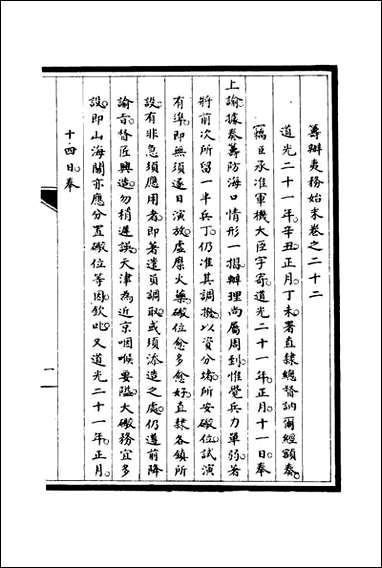 籌辦夷務始末卷之二十二
道光二十一年辛丑正月丁未署直隸總督訥爾經額奏
竊臣承准軍機大臣字寄道光二十一年正月十一日奉
上諭據奏籌防海口情形一摺辦理尚屬周到惟覺兵力單弱著
將前次所留一半兵丁仍准其調撥以資分堵所安礮位試演
有準即無須逐日演放虛糜火藥礮位愈多愈好直隸各鎮所
設有非急須應用者即著遣員調取或須添造之處仍遵前降
諭旨督匠興造勿稍遲誤天津為近京咽喉要隘大礮務宜多
設即山海關亦應分置礮位等因欽此又道光二十一年正月
十四日奉
一